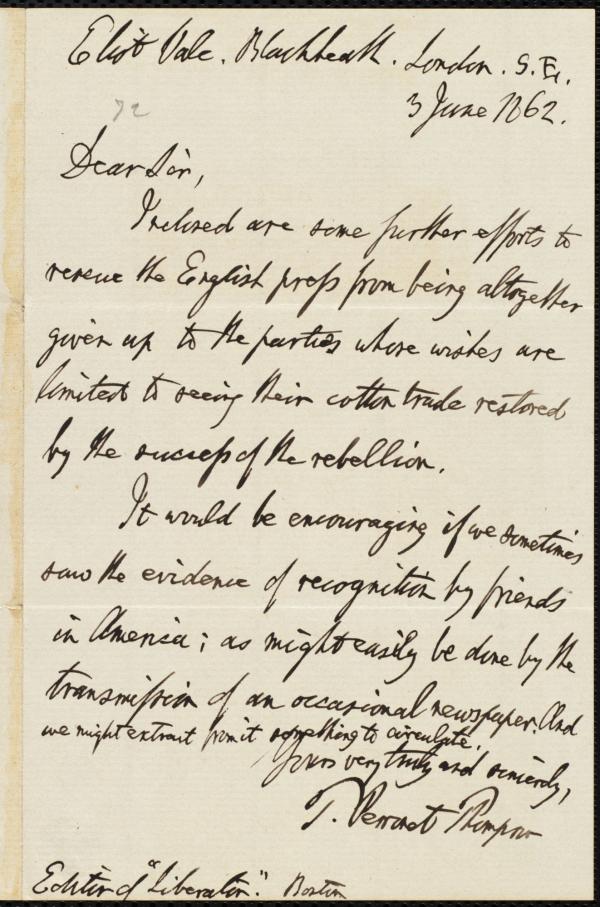 Eliot Vale. Blackheath. London. S.E.
3 June 1862.
72
Dear Sir,
Inclosed are some further efforts to
rescue the English press from being altogether
given up to the parties whose wishes are
limited to seeing their cotton trade restored
by the success of the rebellion.
It would be encouraging if we sometimes
saw the evidence of recognition by friends
in America; as might easily be done by the
transmission of an occasional newspaper. And
we might extract from it something to circulate.
Yours very truly and sincerely,
T. Perronet Thompson
Editor of "Liberator." Boston